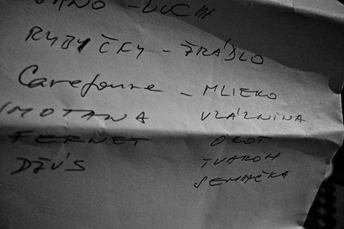 RYBYČKY - ŽRÁDLO
Carefoure - MLIEKO
SMOTANA VLÁKNINA
FERNET OCOT
DŽÚS TVAROH
SEMIAČKA